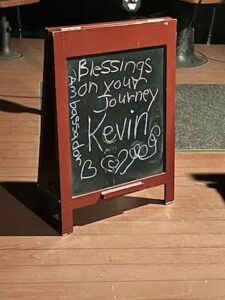 Blessings
on your
Journey
Kevin
Ambassador